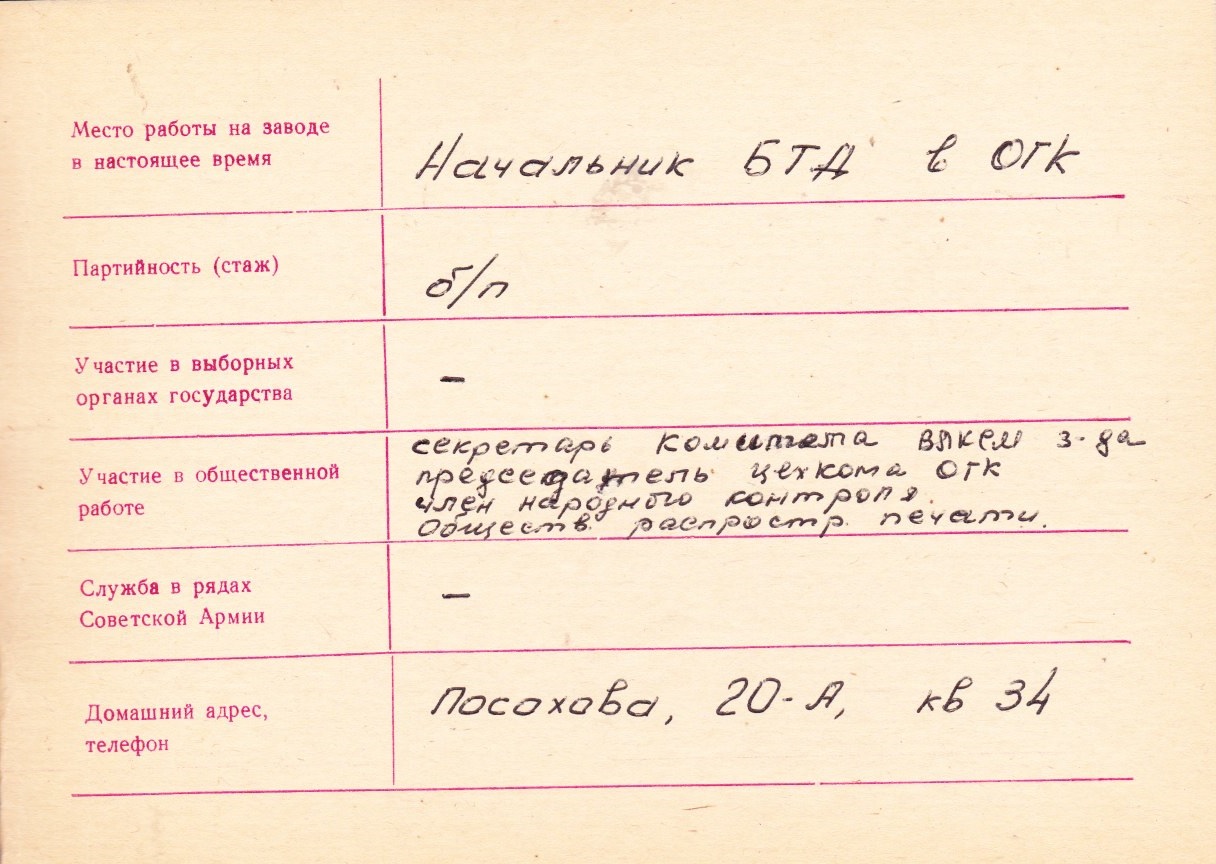 Место работы на заводе
в настоящее время
Начальник БТД в ОГК
Партийность (стаж)
б/п
Участие в выборных
органах государства
–
Участие в общественной
работе
секретарь комитета ВЛКСМ з-да
председатель цехкома ОГК
член народного контроля.
Обществ. распростр. печати.
Служба в рядах
Советской Армии
–
Домашний адрес,
телефон
Посохова, 20-А, кв 34